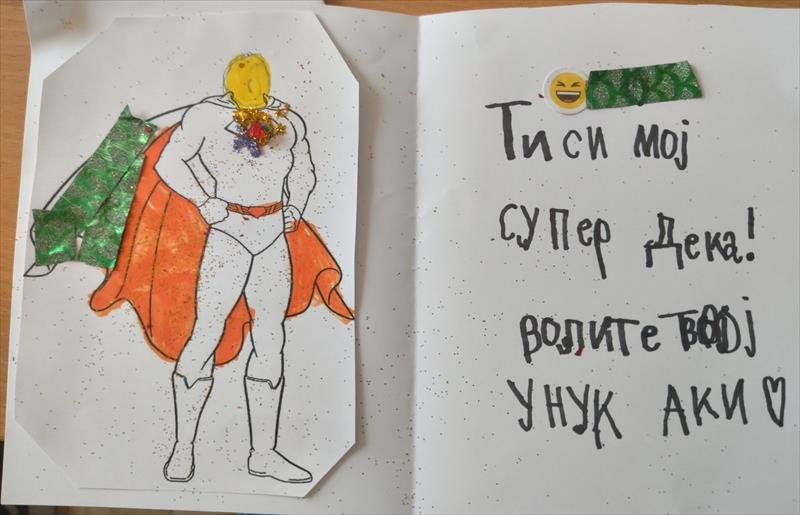 Ти си мој
супер Дека!
волите твој
унук Аки♡